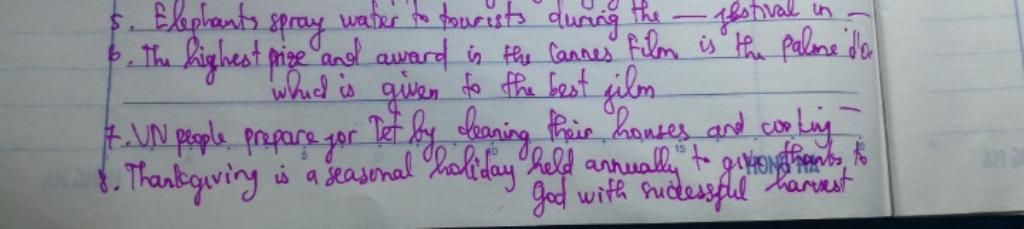 5. Elephants spray water to tourists during the — festival in —
6. The highest prize and award in the Cannes Film is the Palme d'Or
which is given to the best film
7. VN people prepare for Tet by cleaning their houses and cooking —
8. Thanksgiving is a seasonal holiday held annually to give thanks to
HONG HA
God with successful harvest